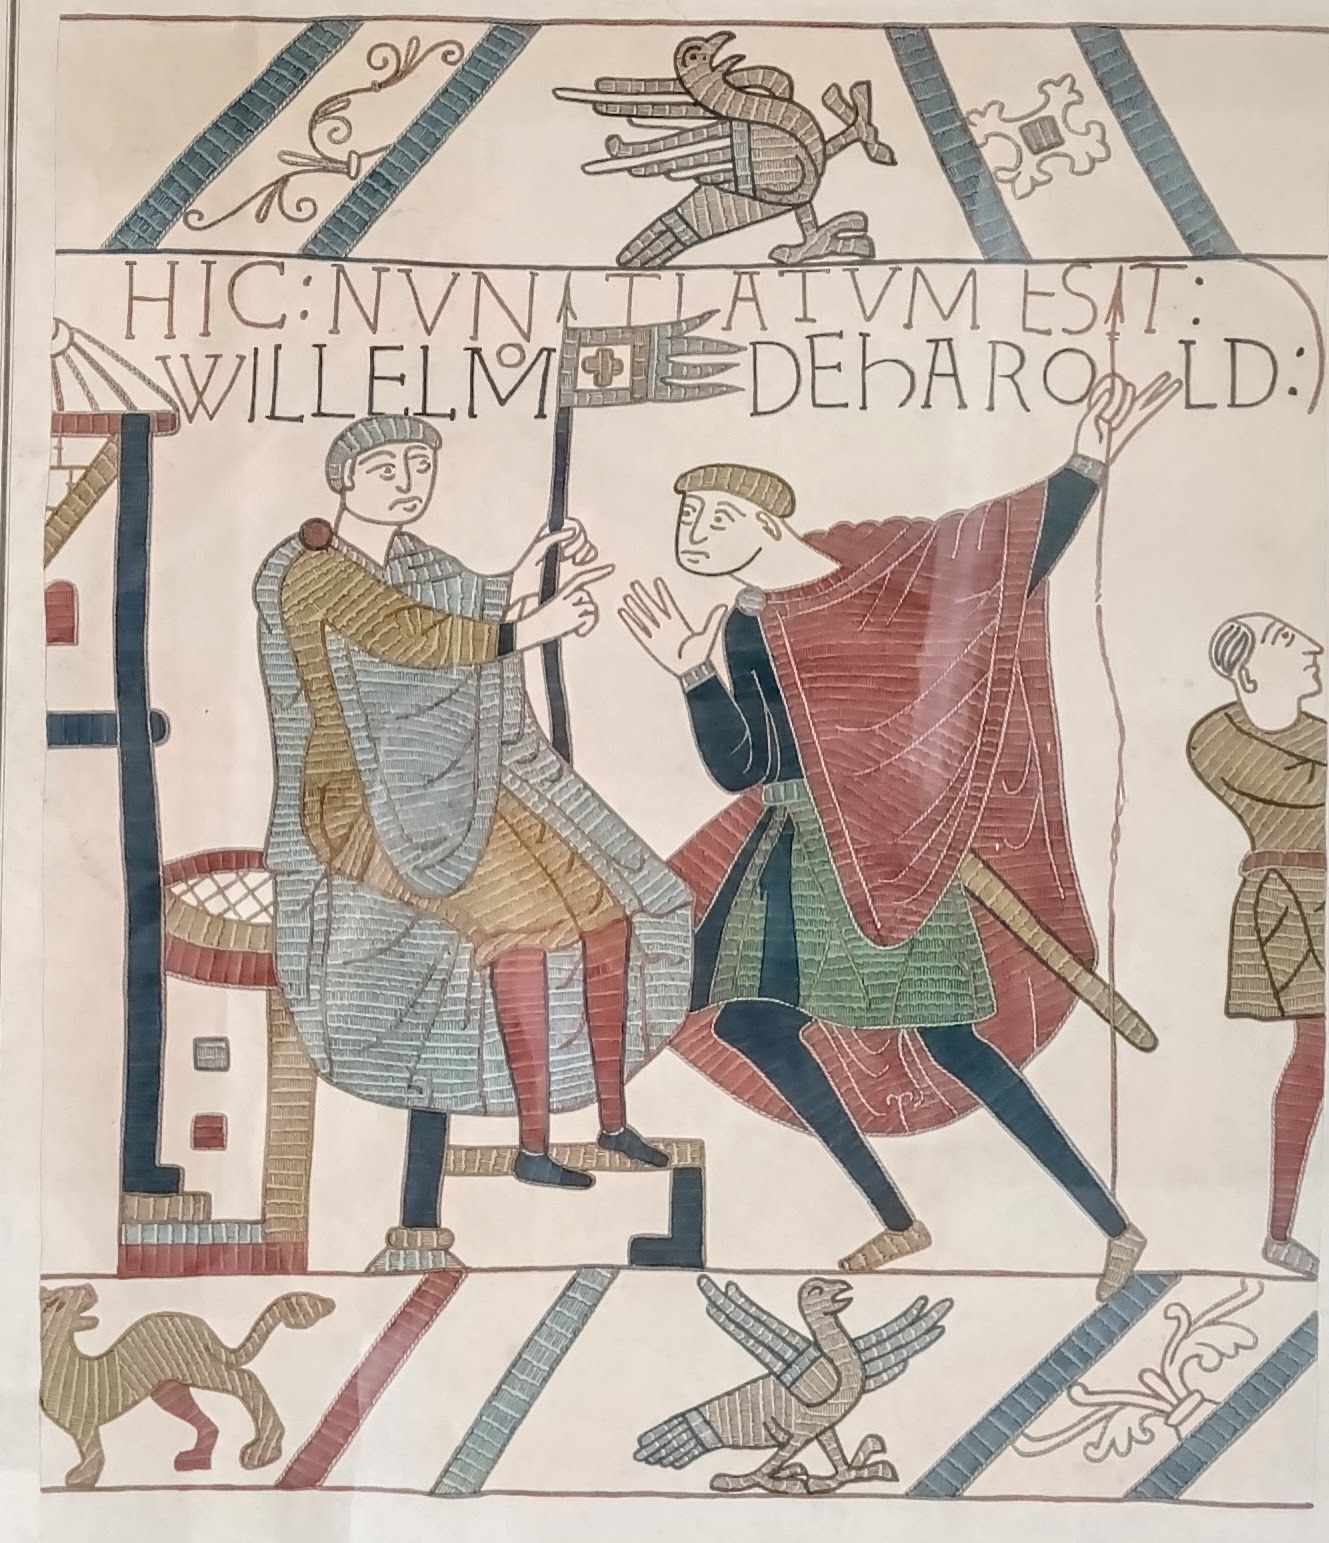 HIC: NVNTIATVM EST:
WILLELMO DEhAROLD: